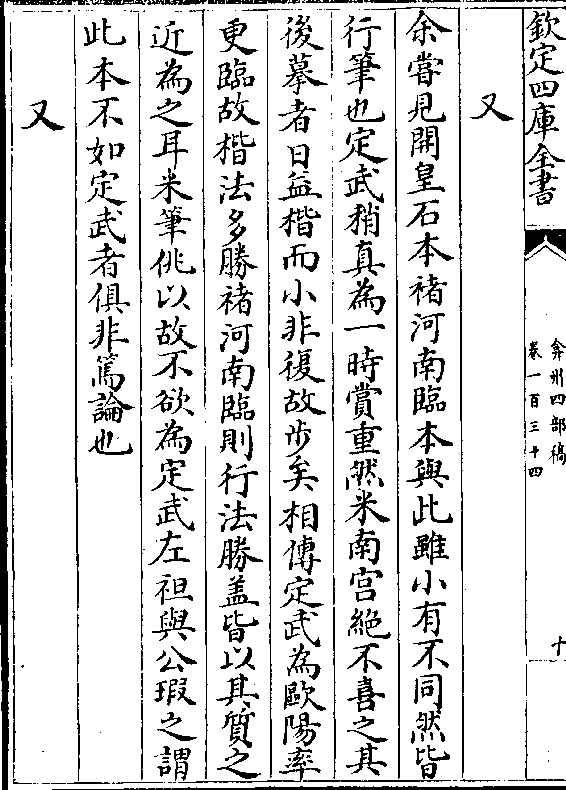 欽定四庫全書
弇州四部稿
卷一百三十四
十
又
余嘗見開皇石本褚河南臨本與此雖小有不同然皆
行筆也定武稍真為一時賞重然米南宫絶不喜之其
後摹者日益楷而小非復故步矣相傳定武為歐陽率
更臨故楷法多勝褚河南臨則行法勝盖皆以其質之
近為之耳米筆佻以故不欲為定武左袒與公瑕之謂
此本不如定武者俱非篤論也
又